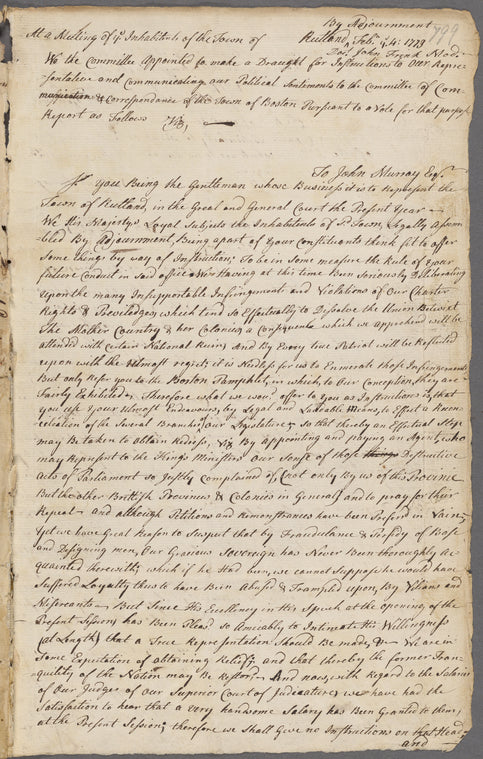 799
By Adjournment
At a Meeting of ye Inhabitants of the Town of Rutland, Feby. ye. 4: 1773
John Frink Mode
We the Committee appointed to make a Draught for Instructions to Our Repre-
sentative and Communicating our Political Sentements to the Committee of Com-
munication & Correspondance of the Town of Boston Pursuant to a Vote for that purpose
Report as Follows Viz,
To John Murray Esqr.
Sr. You Being the Gentleman whose Business it is to Represent the
Town of Rutland, in the Great and General Court the Present Year
We His Majestys Loyal Subjects the Inhabitants of sd. Town, Legally Assem-
bled By Adjournment, Being a part of Your Constituents think fit to offer
Some things by way of Instruction; To be in some measure the Rule of your
future Conduct in said office. We Having at this time Been Seriously Delliberating
Upon the many Insupportable Infringements and Violations of Our Charter
Rights & Priveledges which tend so Effectually to Dissolve the Union Betwixt
The Mother Country & her Colonies a Consequence which we apprehend will be
attended with certain National Ruin; And By Every true Patriot will be Reflected
upon with the Utmost regret; it is Needless for us to Enumerate those Infringements
But only refer you to the Boston Pamphlet, in which, to Our Conception, they are
Fairly Exhibited. Therefore what we woud. offer to You as Instructions is, that
you use Your Utmost Endeavours, by Legal and Lawable Means, to Effect a Recon-
celeation of the Several Branches of Our Legislature; So that thereby an Effectual Step
may Be taken to obtain Redress, Viz By appointing and paying an Agent, who
may Represent to the Kings Ministers Our Sense of those things Distructive
acts of Parliament so Justly Complained of, (not only By us of this Province
But the other Brittish Provinces & Colonies in General) and to pray for their
Repeal and although Petitions and Remonstrances have been Prefer'd in Vain;
Yet we have Great Reason to Suspect that by Fraudulance & Perfidy of Base
and Designing men, Our Gracious Sovereign has Never Been thoroughly Ac-
quainted therewith, which if he Had been, we cannot Suppose he would have
Suffered Loyalty thus to have Been Abused & Trampled upon, By Vilians and
Miscreants But Since His Excellency in His Speech at the opening of the
Present Session, has Been Pleasd. so Amicably to Intimate His Willingness
(at Length) that a True Representation Should Be made, We are in
Some Expectation of obtaining Relief; and that thereby the former Tran-
quility of the Nation may Be Restord. And now, with Regard to the Salaries
of Our Judges of Our Superior Court of Judicature, we have had the
Satisfaction to hear that a very handsome Salary has Been Granted to them,
at the Present Session; therefore we Shall Give no Instructions on that Head
and